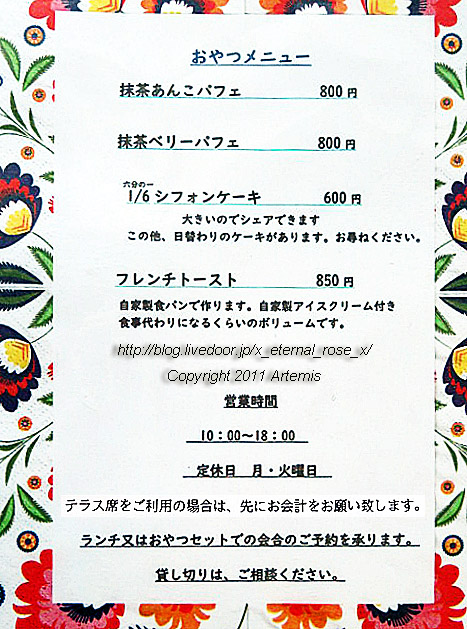 おやつメニュー
抹茶あんこパフェ 800円
抹茶ベリーパフェ 800円
六分の一
1/6 シフォンケーキ 600円
大きいのでシェアできます
この他、日替わりのケーキがあります。お尋ねください。
フレンチトースト 850円
自家製食パンで作ります。自家製アイスクリーム付き
食事代わりになるくらいのボリュームです。
http://blog.livedoor.jp/x_eternal_rose_x/
Copyright 2011 Artemis
営業時間
10：00～18：00
定休日 月・火曜日
テラス席をご利用の場合は、先にお会計をお願い致します。
ランチ又はおやつセットでの会合のご予約を承ります。
貸し切りは、ご相談ください。